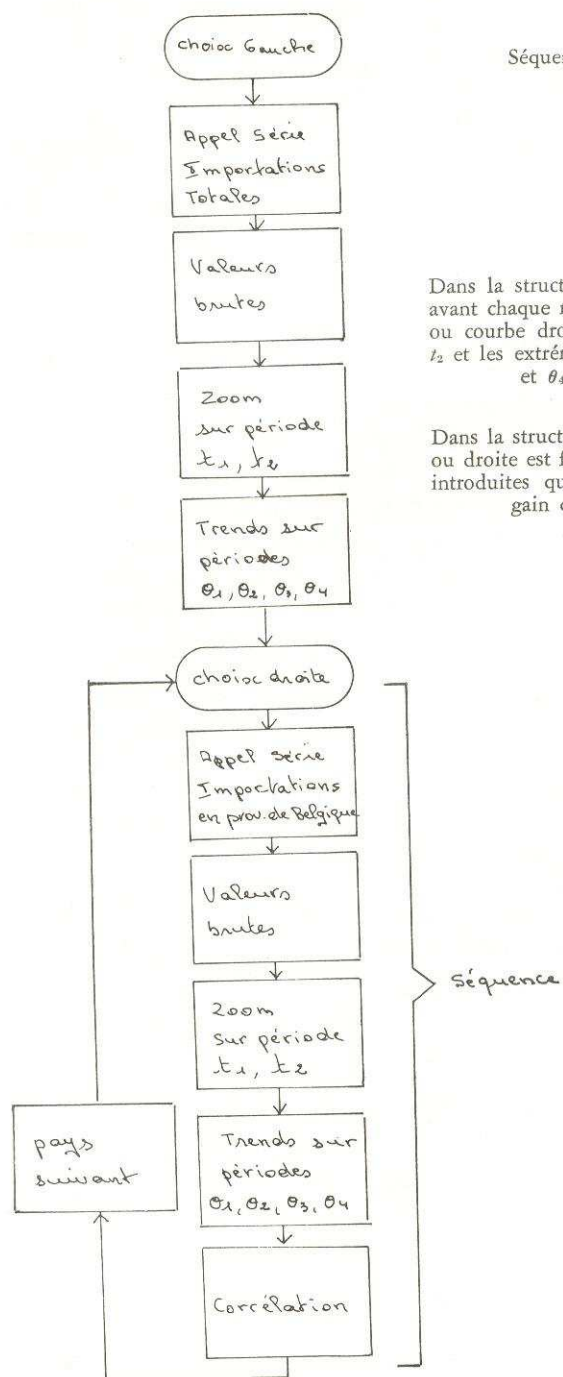 choix Gauche
Appel Série
Importations
Totales
Valeurs
brutes
Zoom
sur période
t₁, t₂
Trends sur
périodes
θ₁, θ₂, θ₃, θ₄
choix droite
Appel série
Importations
en prov. de Belgique
Valeurs
brutes
Zoom
sur période
t₁, t₂
Trends sur
périodes
θ₁, θ₂, θ₃, θ₄
Corrélation
pays
suivant
Séquence
Séquen
Dans la struct
avant chaque
ou courbe dro
t₂ et les extré
et θ₄
Dans la struct
ou droite est f
introduites qu
gain